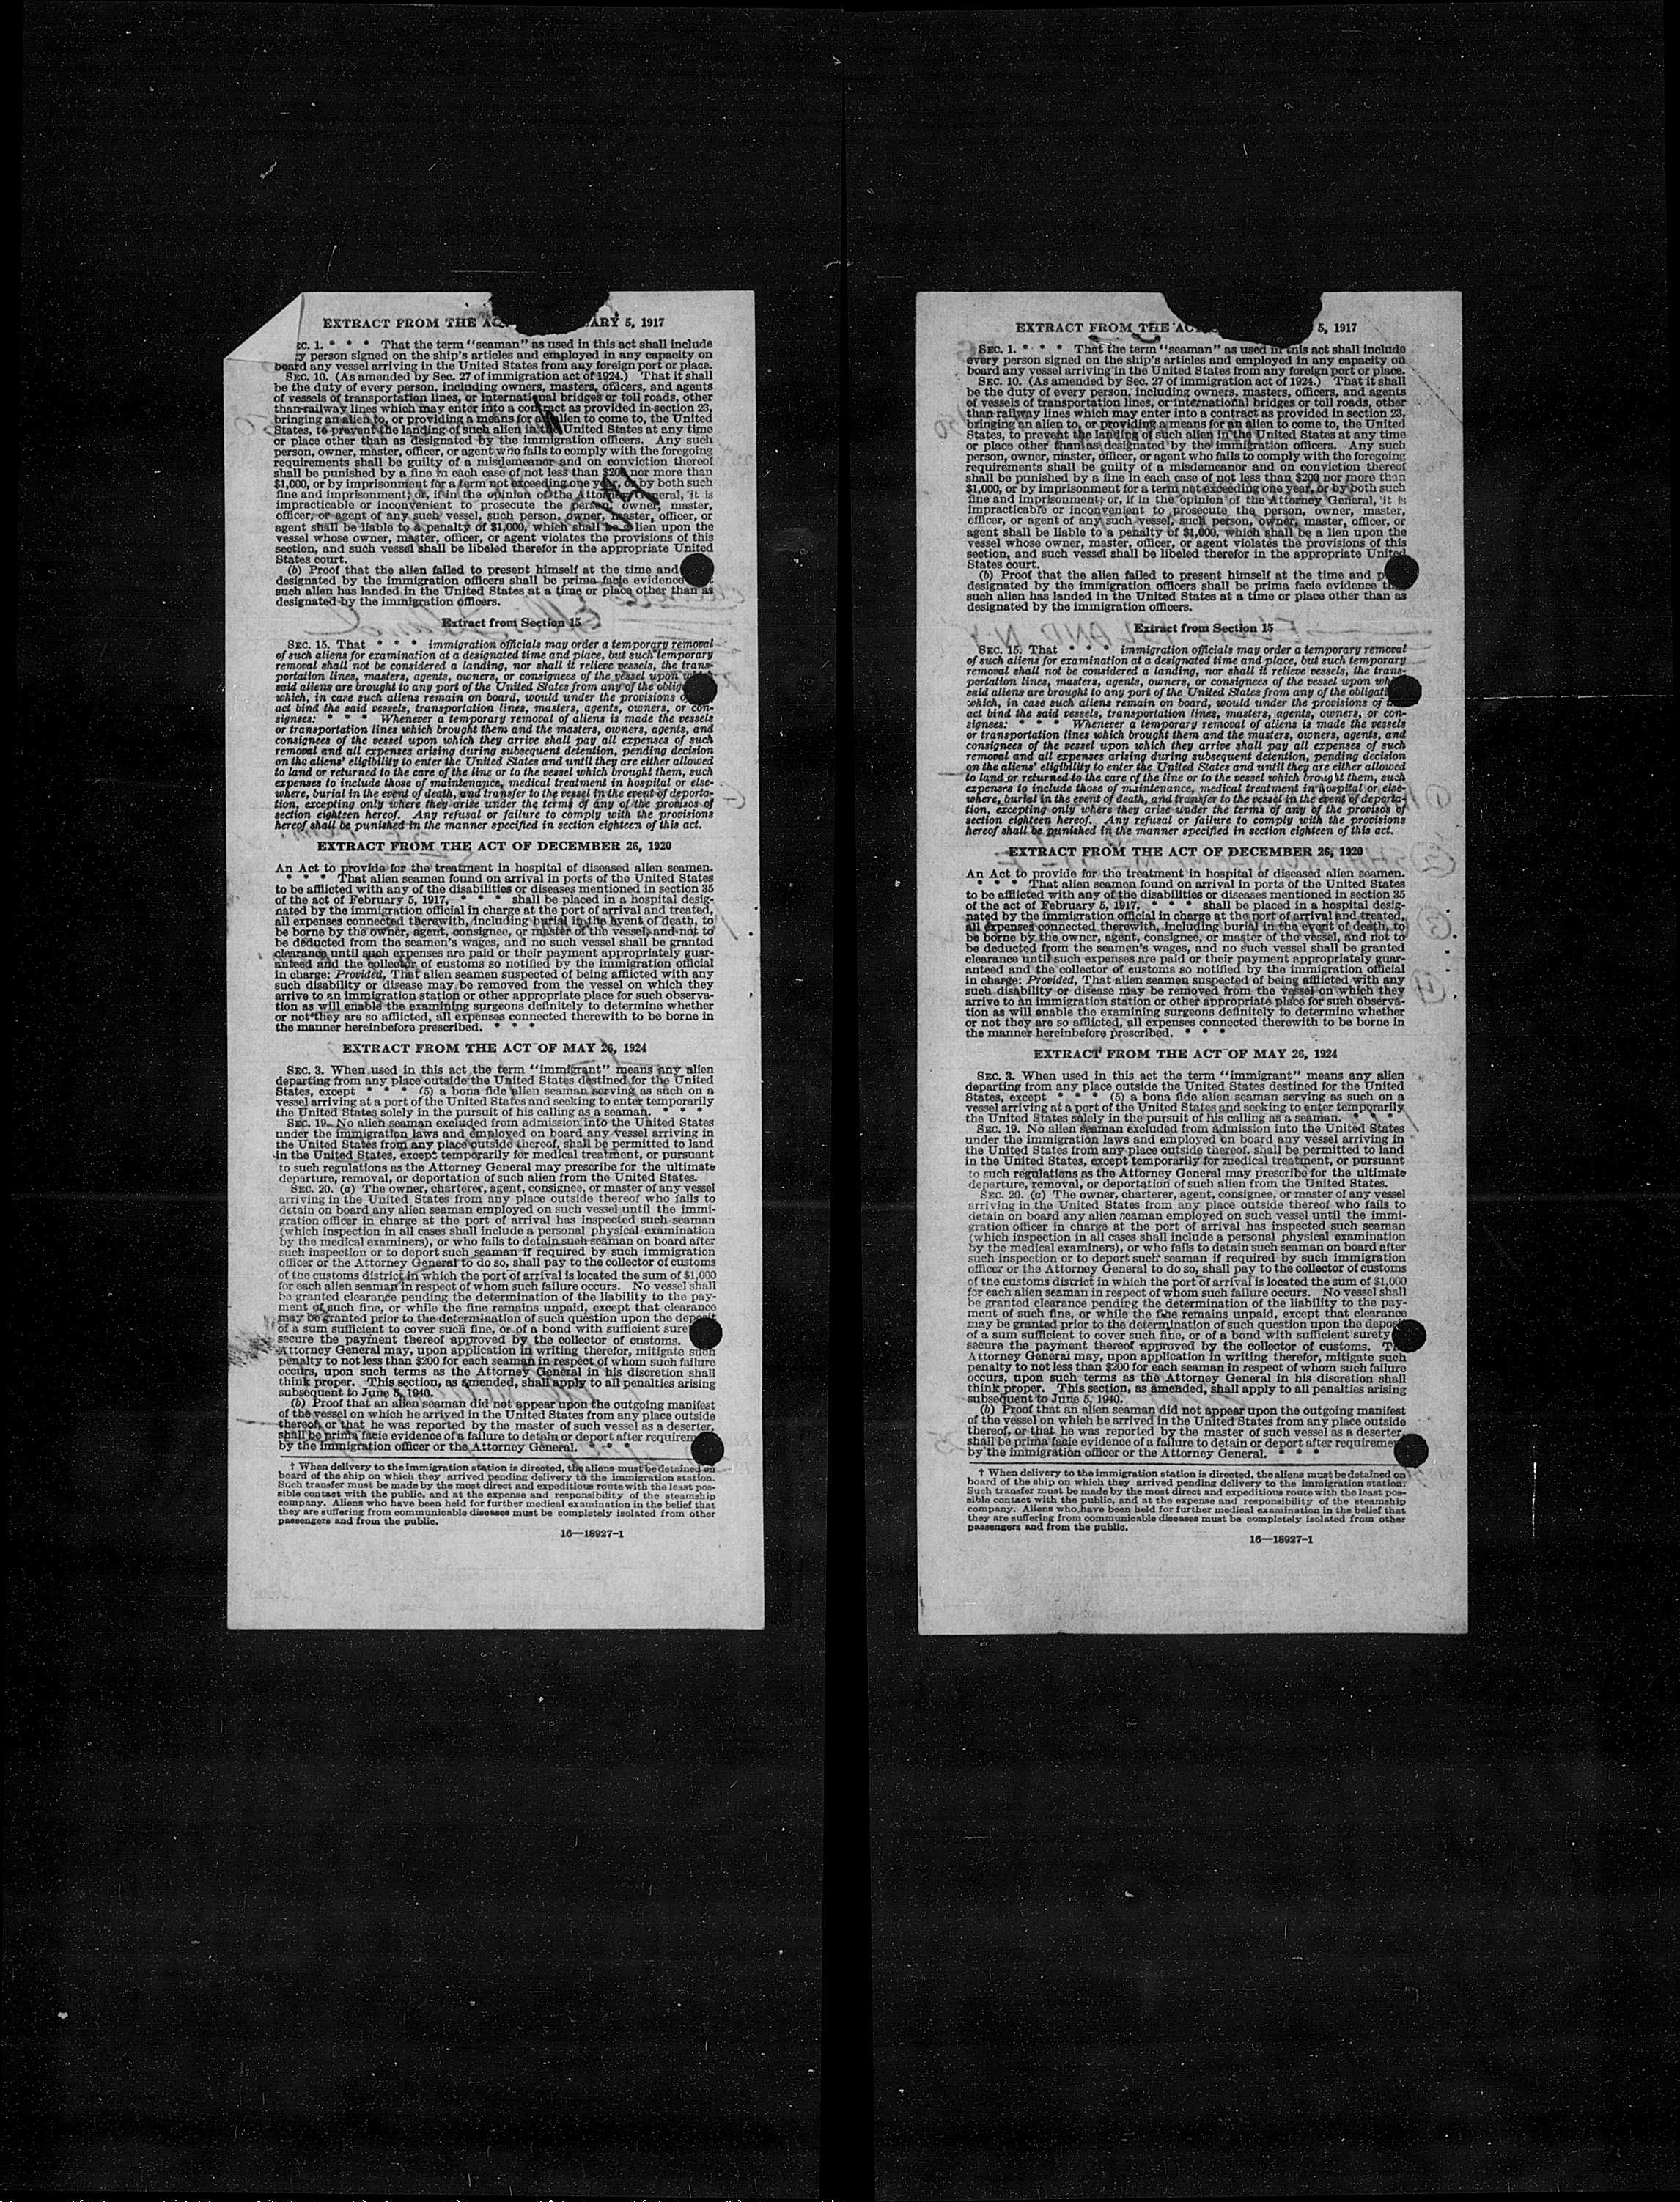 EXTRACT FROM THE AC ARY 5, 1917
EC. 1. * * * That the term "seaman" as used in this act shall include
y person signed on the ship's articles and employed in any capacity on
board any vessel arriving in the United States from any foreign port or place.
SEC. 10. (As amended by Sec. 27 of immigration act of 1924.) That it shall
be the duty of every person, including owners, masters, officers, and agents
of vessels of transportation lines, or international bridges or toll roads, other
than railway lines which may enter into a contract as provided in section 23,
bringing an alien to, or providing a means for an alien to come to, the United
States, to prevent the landing of such alien in the United States at any time
or place other than as designated by the immigration officers. Any such
person, owner, master, officer, or agent who fails to comply with the foregoing
requirements shall be guilty of a misdemeanor and on conviction thereof
shall be punished by a fine in each case of not less than $200 nor more than
$1,000, or by imprisonment for a term not exceeding one year, or by both such
fine and imprisonment; or, if in the opinion of the Attorney General, it is
impracticable or inconvenient to prosecute the person, owner, master,
officer, or agent of any such vessel, such person, owner, master, officer, or
agent shall be liable to a penalty of $1,000, which shall be a lien upon the
vessel whose owner, master, officer, or agent violates the provisions of this
section, and such vessel shall be libeled therefor in the appropriate United
States court.
(b) Proof that the alien failed to present himself at the time and
designated by the immigration officers shall be prima facie evidence
such alien has landed in the United States at a time or place other than as
designated by the immigration officers.
Extract from Section 15
SEC. 15. That * * * immigration officials may order a temporary removal
of such aliens for examination at a designated time and place, but such temporary
removal shall not be considered a landing, nor shall it relieve vessels, the trans-
portation lines, masters, agents, owners, or consignees of the vessel upon
said aliens are brought to any port of the United States from any of the oblig
which, in case such aliens remain on board, would under the provisions o
act bind the said vessels, transportation lines, masters, agents, owners, or con-
signees: * * * Whenever a temporary removal of aliens is made the vessels
or transportation lines which brought them and the masters, owners, agents, and
consignees of the vessel upon which they arrive shall pay all expenses of such
removal and all expenses arising during subsequent detention, pending decision
on the aliens' eligibility to enter the United States and until they are either allowed
to land or returned to the care of the line or to the vessel which brought them, such
expenses to include those of maintenance, medical treatment in hospital or else-
where, burial in the event of death, and transfer to the vessel in the event of deporta-
tion, excepting only where they arise under the terms of any of the provisos of
section eighteen hereof. Any refusal or failure to comply with the provisions
hereof shall be punished in the manner specified in section eighteen of this act.
EXTRACT FROM THE ACT OF DECEMBER 26, 1920
An Act to provide for the treatment in hospital of diseased alien seamen.
* * * That alien seamen found on arrival in ports of the United States
to be afflicted with any of the disabilities or diseases mentioned in section 35
of the act of February 5, 1917, * * * shall be placed in a hospital desig-
nated by the immigration official in charge at the port of arrival and treated,
all expenses connected therewith, including burial in the event of death, to
be borne by the owner, agent, consignee, or master of the vessel, and not to
be deducted from the seamen's wages, and no such vessel shall be granted
clearance until such expenses are paid or their payment appropriately guar-
anteed and the collector of customs so notified by the immigration official
in charge: Provided, That alien seamen suspected of being afflicted with any
such disability or disease may be removed from the vessel on which they
arrive to an immigration station or other appropriate place for such observa-
tion as will enable the examining surgeons definitely to determine whether
or not they are so afflicted, all expenses connected therewith to be borne in
the manner hereinbefore prescribed. * * *
EXTRACT FROM THE ACT OF MAY 26, 1924
SEC. 3. When used in this act the term "immigrant" means any alien
departing from any place outside the United States destined for the United
States, except * * * (5) a bona fide alien seaman serving as such on a
vessel arriving at a port of the United States and seeking to enter temporarily
the United States solely in the pursuit of his calling as a seaman. * * *
SEC. 19. No alien seaman excluded from admission into the United States
under the immigration laws and employed on board any vessel arriving in
the United States from any place outside thereof, shall be permitted to land
in the United States, except temporarily for medical treatment, or pursuant
to such regulations as the Attorney General may prescribe for the ultimate
departure, removal, or deportation of such alien from the United States.
SEC. 20. (a) The owner, charterer, agent, consignee, or master of any vessel
arriving in the United States from any place outside thereof who fails to
detain on board any alien seaman employed on such vessel until the immi-
gration officer in charge at the port of arrival has inspected such seaman
(which inspection in all cases shall include a personal physical examination
by the medical examiners), or who fails to detain such seaman on board after
such inspection or to deport such seaman if required by such immigration
officer or the Attorney General to do so, shall pay to the collector of customs
of the customs district in which the port of arrival is located the sum of $1,000
for each alien seaman in respect of whom such failure occurs. No vessel shall
be granted clearance pending the determination of the liability to the pay-
ment of such fine, or while the fine remains unpaid, except that clearance
may be granted prior to the determination of such question upon the deposit
of a sum sufficient to cover such fine, or of a bond with sufficient sure
secure the payment thereof approved by the collector of customs.
Attorney General may, upon application in writing therefor, mitigate such
penalty to not less than $200 for each seaman in respect of whom such failure
occurs, upon such terms as the Attorney General in his discretion shall
think proper. This section, as amended, shall apply to all penalties arising
subsequent to June 5, 1940.
(b) Proof that an alien seaman did not appear upon the outgoing manifest
of the vessel on which he arrived in the United States from any place outside
thereof, or that he was reported by the master of such vessel as a deserter,
shall be prima facie evidence of a failure to detain or deport after requirem
by the immigration officer or the Attorney General. * * *
† When delivery to the immigration station is directed, the aliens must be detained on
board of the ship on which they arrived pending delivery to the immigration station.
Such transfer must be made by the most direct and expeditious route with the least pos-
sible contact with the public, and at the expense and responsibility of the steamship
company. Aliens who have been held for further medical examination in the belief that
they are suffering from communicable diseases must be completely isolated from other
passengers and from the public.
16—18927-1
EXTRACT FROM THE AC 5, 1917
SEC. 1. * * * That the term "seaman" as used in this act shall include
every person signed on the ship's articles and employed in any capacity on
board any vessel arriving in the United States from any foreign port or place.
SEC. 10. (As amended by Sec. 27 of immigration act of 1924.) That it shall
be the duty of every person, including owners, masters, officers, and agents
of vessels of transportation lines, or international bridges or toll roads, other
than railway lines which may enter into a contract as provided in section 23,
bringing an alien to, or providing a means for an alien to come to, the United
States, to prevent the landing of such alien in the United States at any time
or place other than as designated by the immigration officers. Any such
person, owner, master, officer, or agent who fails to comply with the foregoing
requirements shall be guilty of a misdemeanor and on conviction thereof
shall be punished by a fine in each case of not less than $200 nor more than
$1,000, or by imprisonment for a term not exceeding one year, or by both such
fine and imprisonment; or, if in the opinion of the Attorney General, it is
impracticable or inconvenient to prosecute the person, owner, master,
officer, or agent of any such vessel, such person, owner, master, officer, or
agent shall be liable to a penalty of $1,000, which shall be a lien upon the
vessel whose owner, master, officer, or agent violates the provisions of this
section, and such vessel shall be libeled therefor in the appropriate United
States court.
(b) Proof that the alien failed to present himself at the time and p
designated by the immigration officers shall be prima facie evidence t
such alien has landed in the United States at a time or place other than as
designated by the immigration officers.
Extract from Section 15
SEC. 15. That * * * immigration officials may order a temporary removal
of such aliens for examination at a designated time and place, but such temporary
removal shall not be considered a landing, nor shall it relieve vessels, the trans-
portation lines, masters, agents, owners, or consignees of the vessel upon wh
said aliens are brought to any port of the United States from any of the obligat
which, in case such aliens remain on board, would under the provisions of
act bind the said vessels, transportation lines, masters, agents, owners, or con-
signees: * * * Whenever a temporary removal of aliens is made the vessels
or transportation lines which brought them and the masters, owners, agents, and
consignees of the vessel upon which they arrive shall pay all expenses of such
removal and all expenses arising during subsequent detention, pending decision
on the aliens' eligibility to enter the United States and until they are either allowed
to land or returned to the care of the line or to the vessel which brought them, such
expenses to include those of maintenance, medical treatment in hospital or else-
where, burial in the event of death, and transfer to the vessel in the event of deporta-
tion, excepting only where they arise under the terms of any of the provisos of
section eighteen hereof. Any refusal or failure to comply with the provisions
hereof shall be punished in the manner specified in section eighteen of this act.
EXTRACT FROM THE ACT OF DECEMBER 26, 1920
An Act to provide for the treatment in hospital of diseased alien seamen.
* * * That alien seamen found on arrival in ports of the United States
to be afflicted with any of the disabilities or diseases mentioned in section 35
of the act of February 5, 1917, * * * shall be placed in a hospital desig-
nated by the immigration official in charge at the port of arrival and treated,
all expenses connected therewith, including burial in the event of death, to
be borne by the owner, agent, consignee, or master of the vessel, and not to
be deducted from the seamen's wages, and no such vessel shall be granted
clearance until such expenses are paid or their payment appropriately guar-
anteed and the collector of customs so notified by the immigration official
in charge: Provided, That alien seamen suspected of being afflicted with any
such disability or disease may be removed from the vessel on which they
arrive to an immigration station or other appropriate place for such observa-
tion as will enable the examining surgeons definitely to determine whether
or not they are so afflicted, all expenses connected therewith to be borne in
the manner hereinbefore prescribed. * * *
EXTRACT FROM THE ACT OF MAY 26, 1924
SEC. 3. When used in this act the term "immigrant" means any alien
departing from any place outside the United States destined for the United
States, except * * * (5) a bona fide alien seaman serving as such on a
vessel arriving at a port of the United States and seeking to enter temporarily
the United States solely in the pursuit of his calling as a seaman. * * *
SEC. 19. No alien seaman excluded from admission into the United States
under the immigration laws and employed on board any vessel arriving in
the United States from any place outside thereof, shall be permitted to land
in the United States, except temporarily for medical treatment, or pursuant
to such regulations as the Attorney General may prescribe for the ultimate
departure, removal, or deportation of such alien from the United States.
SEC. 20. (a) The owner, charterer, agent, consignee, or master of any vessel
arriving in the United States from any place outside thereof who fails to
detain on board any alien seaman employed on such vessel until the immi-
gration officer in charge at the port of arrival has inspected such seaman
(which inspection in all cases shall include a personal physical examination
by the medical examiners), or who fails to detain such seaman on board after
such inspection or to deport such seaman if required by such immigration
officer or the Attorney General to do so, shall pay to the collector of customs
of the customs district in which the port of arrival is located the sum of $1,000
for each alien seaman in respect of whom such failure occurs. No vessel shall
be granted clearance pending the determination of the liability to the pay-
ment of such fine, or while the fine remains unpaid, except that clearance
may be granted prior to the determination of such question upon the deposit
of a sum sufficient to cover such fine, or of a bond with sufficient surety
secure the payment thereof approved by the collector of customs. T
Attorney General may, upon application in writing therefor, mitigate such
penalty to not less than $200 for each seaman in respect of whom such failure
occurs, upon such terms as the Attorney General in his discretion shall
think proper. This section, as amended, shall apply to all penalties arising
subsequent to June 5, 1940.
(b) Proof that an alien seaman did not appear upon the outgoing manifest
of the vessel on which he arrived in the United States from any place outside
thereof, or that he was reported by the master of such vessel as a deserter,
shall be prima facie evidence of a failure to detain or deport after requireme
by the immigration officer or the Attorney General. * * *
† When delivery to the immigration station is directed, the aliens must be detained on
board of the ship on which they arrived pending delivery to the immigration station.
Such transfer must be made by the most direct and expeditious route with the least pos-
sible contact with the public, and at the expense and responsibility of the steamship
company. Aliens who have been held for further medical examination in the belief that
they are suffering from communicable diseases must be completely isolated from other
passengers and from the public.
16—18927-1